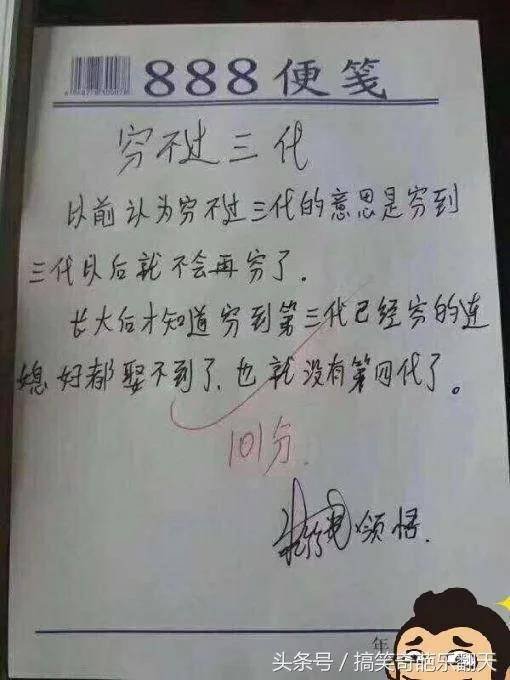 888便笺
穷不过三代
以前认为穷不过三代的意思是穷到
三代以后就不会再穷了.
长大后才知道穷到第三代已经穷的连
媳好都娶不到了.也就没有第四代了。
101分.
领悟.
年
头条号/搞笑奇葩乐翻天